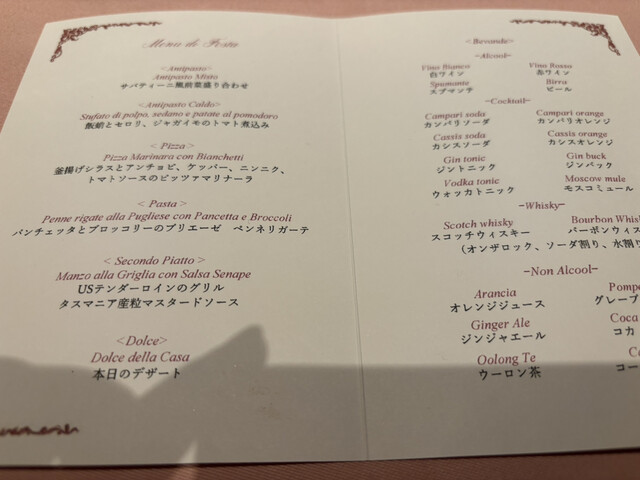 Menu di Festa
<Antipasto>
Antipasto Misto
サバティーニ風前菜盛り合わせ
<Antipasto Caldo>
Stufato di polpo, sedano e patate al pomodoro
飯蛸とセロリ、ジャガイモのトマト煮込み
< Pizza >
Pizza Marinara con Bianchetti
釜揚げシラスとアンチョビ、ケッパー、ニンニク、
トマトソースのピッツァマリナーラ
< Pasta >
Penne rigate alla Pugliese con Pancetta e Broccoli
パンチェッタとブロッコリーのプリエーゼ ペンネリガーテ
< Secondo Piatto >
Manzo alla Griglia con Salsa Senape
USテンダーロインのグリル
タスマニア産粒マスタードソース
<Dolce>
Dolce della Casa
本日のデザート
<Bevande>
~Alcool~
Vino Bianco Vino Rosso
白ワイン 赤ワイン
Spumante Birra
スプマンテ ビール
~Cocktail~
Campari soda Campari orange
カンパリソーダ カンパリオレンジ
Cassis soda Cassis orange
カシスソーダ カシスオレンジ
Gin tonic Gin buck
ジントニック ジンバック
Vodka tonic Moscow mule
ウォッカトニック モスコミュール
~Whisky~
Scotch whisky Bourbon Whis
スコッチウィスキー バーボンウィス
(オンザロック、ソーダ割り、水割り
~Non Alcool~
Arancia Pompe
オレンジジュース グレープ
Ginger Ale Coca
ジンジャエール コカ
Oolong Te Ca
ウーロン茶 コー